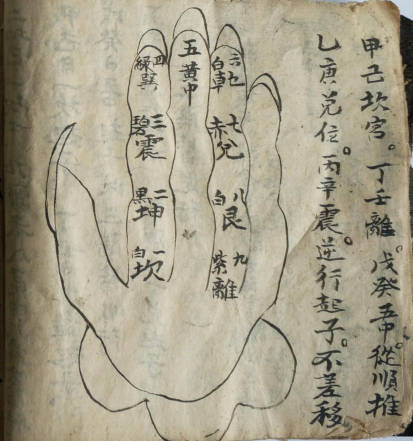 甲己坎宮。丁壬離。戊癸五中。從順推
乙庚兌位。丙辛震。逆行起子。不差移
六白乾
七赤兌
八白艮
九紫離
五黃中
四綠巽
三碧震
二黑坤
一白坎